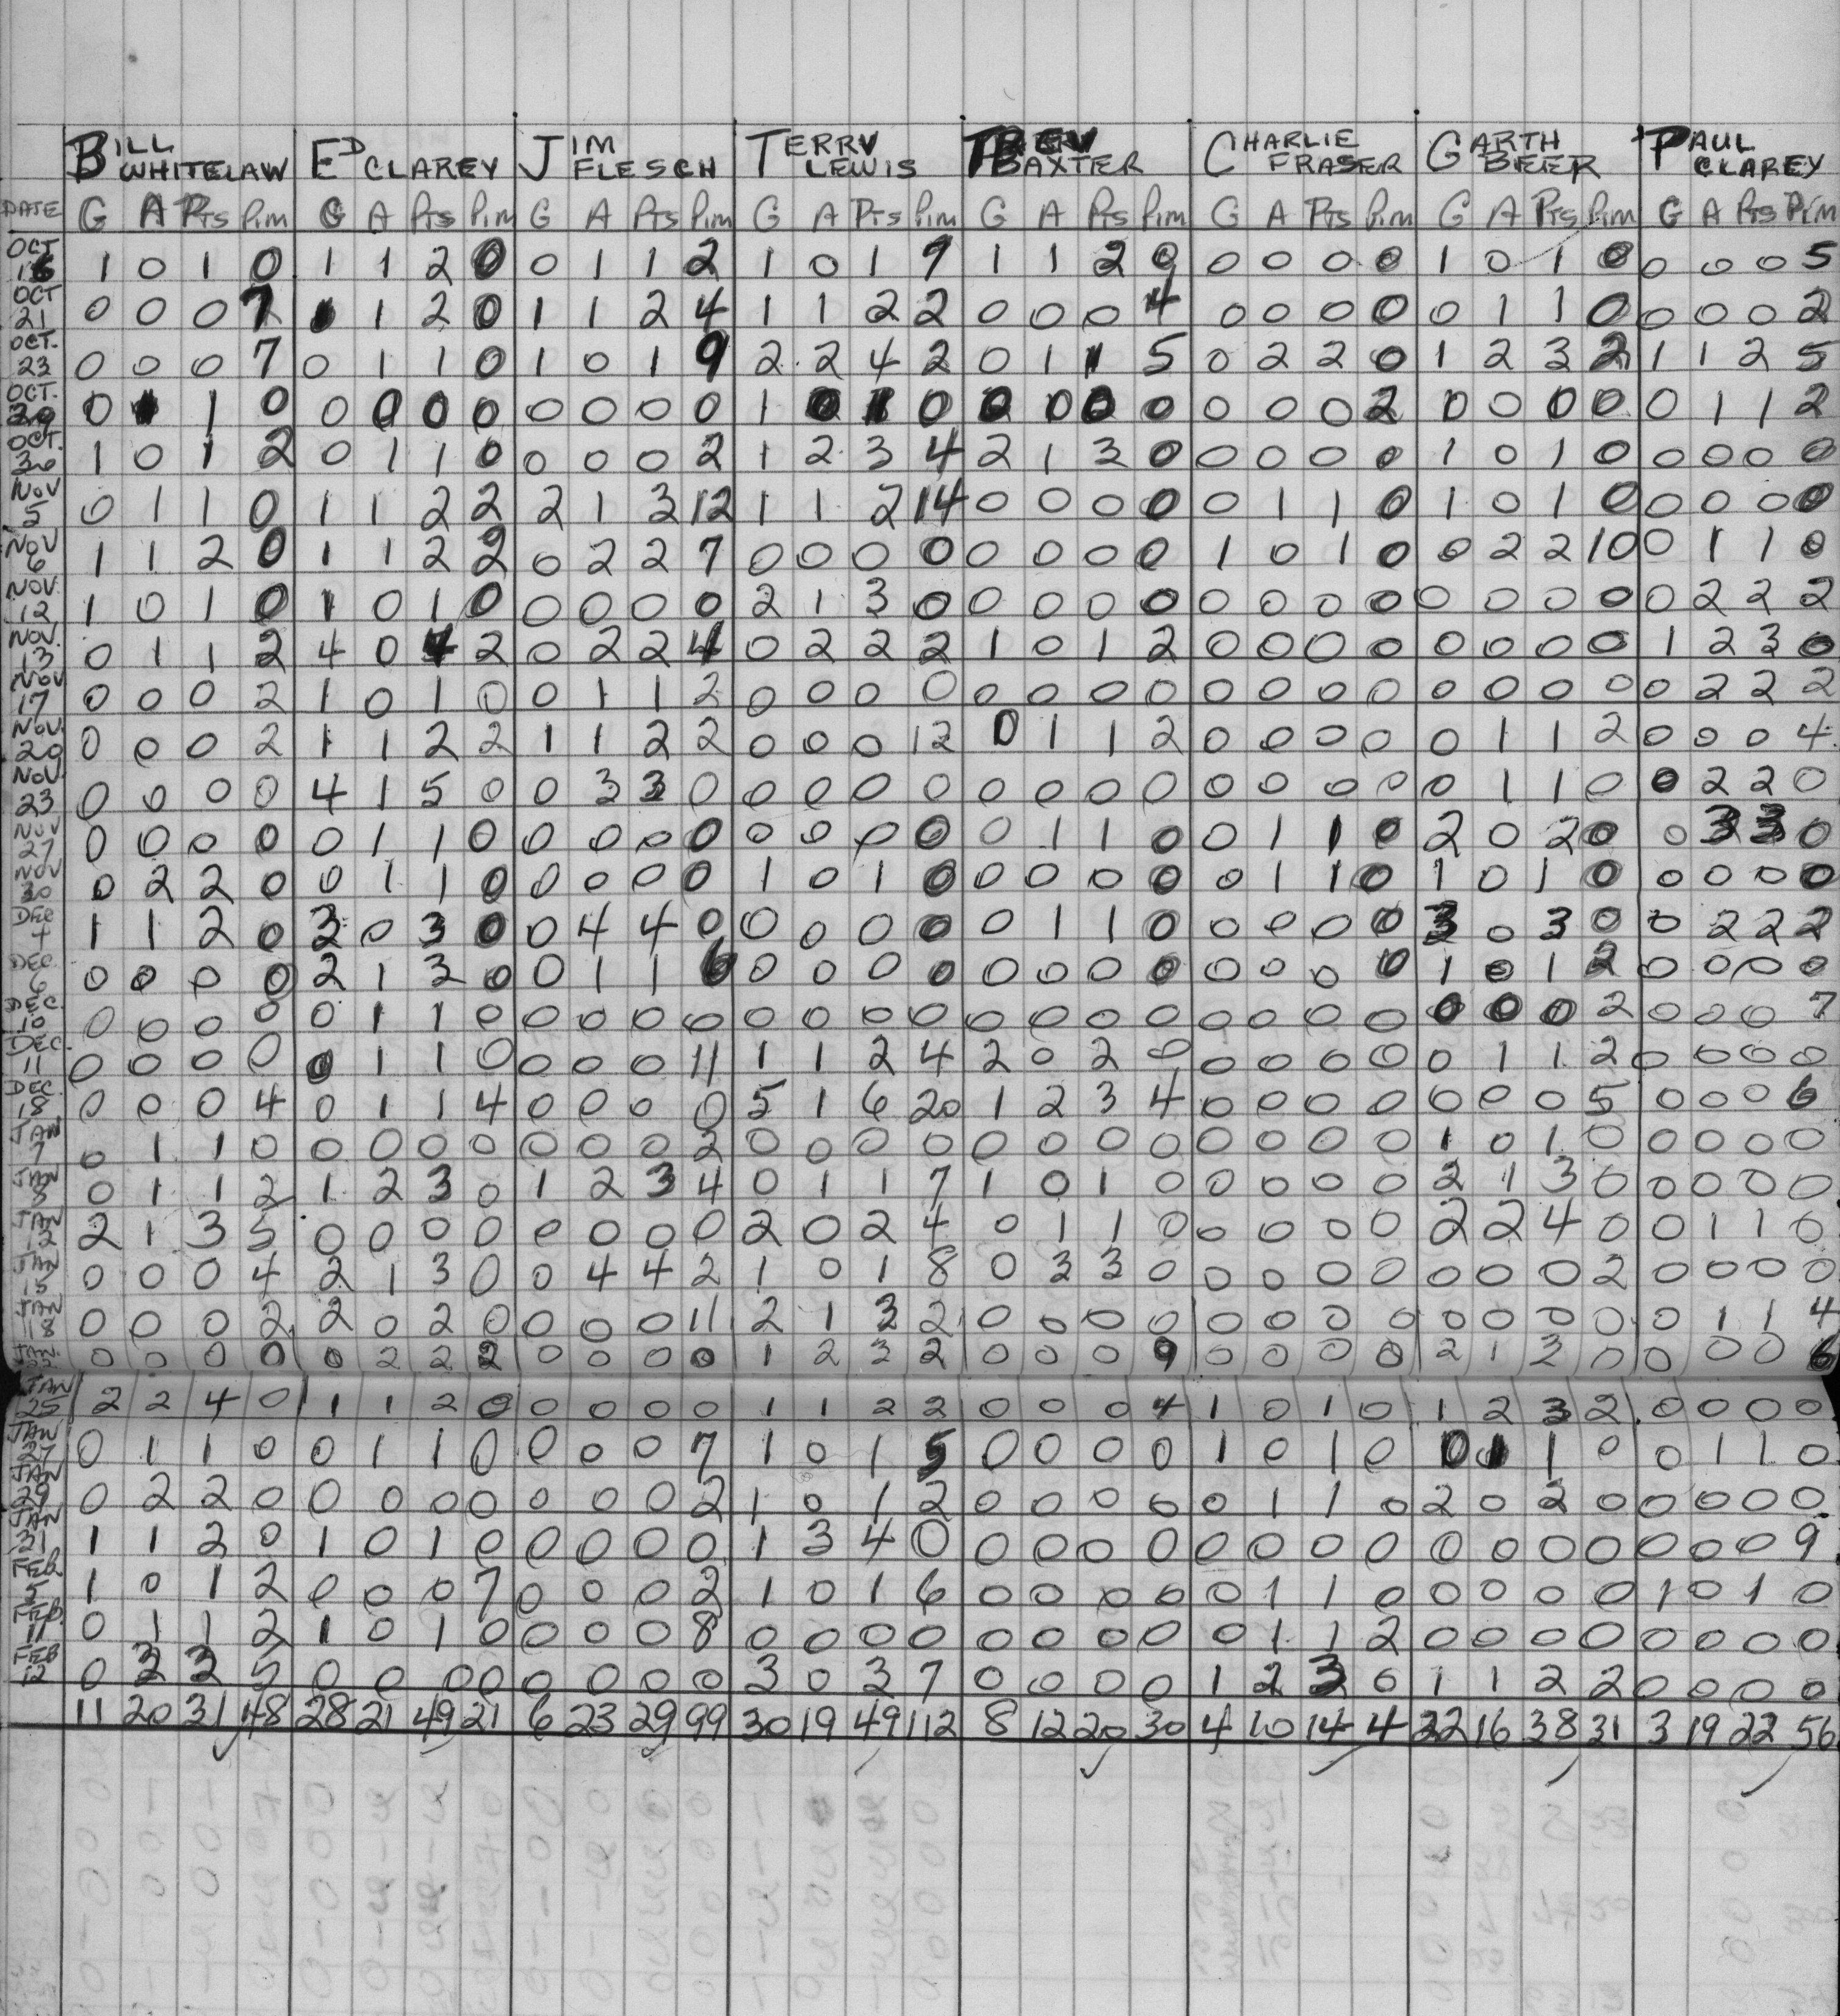 BILL WHITELAW ED CLAREY JIM FLESCH TERRY LEWIS BAXTER CHARLIE FRASER GARTH BEER PAUL CLAREY
DATE G A Pts Pim G A Pts Pim G A Pts Pim G A Pts Pim G A Pts Pim G A Pts Pim G A Pts Pim G A Pts Pim
OCT 16 1 0 1 0 1 1 2 0 0 1 1 2 1 0 1 9 1 1 2 0 0 0 0 0 1 0 1 0 0 0 0 5
OCT 21 0 0 0 7 1 1 2 0 1 1 2 4 1 1 2 2 0 0 0 4 0 0 0 0 0 1 1 0 0 0 0 2
OCT. 23 0 0 0 7 0 1 1 0 1 0 1 9 2 2 4 2 0 1 1 5 0 2 2 0 1 2 3 2 1 1 2 5
OCT. 29 0 1 1 0 0 0 0 0 0 0 0 0 1 0 1 0 0 0 0 0 0 0 0 2 0 0 0 0 0 1 1 2
OCT. 30 1 0 1 2 0 1 1 0 0 0 0 2 1 2 3 4 2 1 3 0 0 0 0 0 1 0 1 0 0 0 0 0
NOV 5 0 1 1 0 1 1 2 2 2 1 3 12 1 1 2 14 0 0 0 0 0 1 1 0 1 0 1 0 0 0 0 0
NOV 6 1 1 2 0 1 1 2 2 0 2 2 7 0 0 0 0 0 0 0 0 1 0 1 0 0 2 2 10 0 1 1 0
NOV. 12 1 0 1 0 1 0 1 0 0 0 0 0 2 1 3 0 0 0 0 0 0 0 0 0 0 0 0 0 0 2 2 2
NOV. 13 0 1 1 2 4 0 4 2 0 2 2 4 0 2 2 2 1 0 1 2 0 0 0 0 0 0 0 0 1 2 3 0
NOV 17 0 0 0 2 1 0 1 0 0 1 1 2 0 0 0 0 0 0 0 0 0 0 0 0 0 0 0 0 0 2 2 2
NOV. 20 0 0 0 2 1 1 2 2 1 1 2 2 0 0 0 12 0 1 1 2 0 0 0 0 0 1 1 2 0 0 0 4
NOV. 23 0 0 0 0 4 1 5 0 0 3 3 0 0 0 0 0 0 0 0 0 0 0 0 0 0 1 1 0 0 2 2 0
NOV 27 0 0 0 0 0 1 1 0 0 0 0 0 0 0 0 0 0 1 1 0 0 1 1 0 2 0 2 0 0 3 3 0
NOV 30 0 2 2 0 0 1 1 0 0 0 0 0 1 0 1 0 0 0 0 0 0 1 1 0 1 0 1 0 0 0 0 0
DEC 4 1 1 2 0 3 0 3 0 0 4 4 0 0 0 0 0 0 1 1 0 0 0 0 0 3 0 3 0 0 2 2 2
DEC. 6 0 0 0 0 2 1 3 0 0 1 1 6 0 0 0 0 0 0 0 0 0 0 0 0 1 0 1 2 0 0 0 0
DEC. 10 0 0 0 0 0 1 1 0 0 0 0 0 0 0 0 0 0 0 0 0 0 0 0 0 0 0 0 2 0 0 0 7
DEC. 11 0 0 0 0 0 1 1 0 0 0 0 11 1 1 2 4 2 0 2 0 0 0 0 0 0 1 1 2 0 0 0 0
DEC. 18 0 0 0 4 0 1 1 4 0 0 0 0 5 1 6 20 1 2 3 4 0 0 0 0 0 0 0 5 0 0 0 6
JAN 7 0 1 1 0 0 0 0 0 0 0 0 2 0 0 0 0 0 0 0 0 0 0 0 0 1 0 1 0 0 0 0 0
JAN 8 0 1 1 2 1 2 3 0 1 2 3 4 0 1 1 7 1 0 1 0 0 0 0 0 2 1 3 0 0 0 0 0
JAN 12 2 1 3 5 0 0 0 0 0 0 0 0 2 0 2 4 0 1 1 0 0 0 0 0 2 2 4 0 0 1 1 0
JAN 15 0 0 0 4 2 1 3 0 0 4 4 2 1 0 1 8 0 3 3 0 0 0 0 0 0 0 0 2 0 0 0 0
JAN 18 0 0 0 2 2 0 2 0 0 0 0 11 2 1 3 2 0 0 0 0 0 0 0 0 0 0 0 0 0 1 1 4
JAN. 0 0 0 0 0 2 2 2 0 0 0 0 1 2 3 2 0 0 0 9 0 0 0 0 2 1 3 0 0 0 0 6
JAN 25 2 2 4 0 1 1 2 0 0 0 0 0 1 1 2 2 0 0 0 4 1 0 1 0 1 2 3 2 0 0 0 0
JAN 27 0 1 1 0 0 1 1 0 0 0 0 7 1 0 1 5 0 0 0 0 1 0 1 0 0 1 1 0 0 1 1 0
JAN 29 0 2 2 0 0 0 0 0 0 0 0 2 1 0 1 2 0 0 0 0 0 1 1 0 2 0 2 0 0 0 0 0
JAN 31 1 1 2 0 1 0 1 0 0 0 0 0 1 3 4 0 0 0 0 0 0 0 0 0 0 0 0 0 0 0 0 9
FEB 5 1 0 1 2 0 0 0 7 0 0 0 2 1 0 1 6 0 0 0 0 0 1 1 0 0 0 0 0 1 0 1 0
FEB. 11 0 1 1 2 1 0 1 0 0 0 0 8 0 0 0 0 0 0 0 0 0 1 1 2 0 0 0 0 0 0 0 0
FEB 12 0 3 3 5 0 0 0 0 0 0 0 0 3 0 3 7 0 0 0 0 1 2 3 0 1 1 2 2 0 0 0 0
11 20 31 48 28 21 49 21 6 23 29 99 30 19 49 112 8 12 20 30 4 10 14 4 22 16 38 31 3 19 22 56